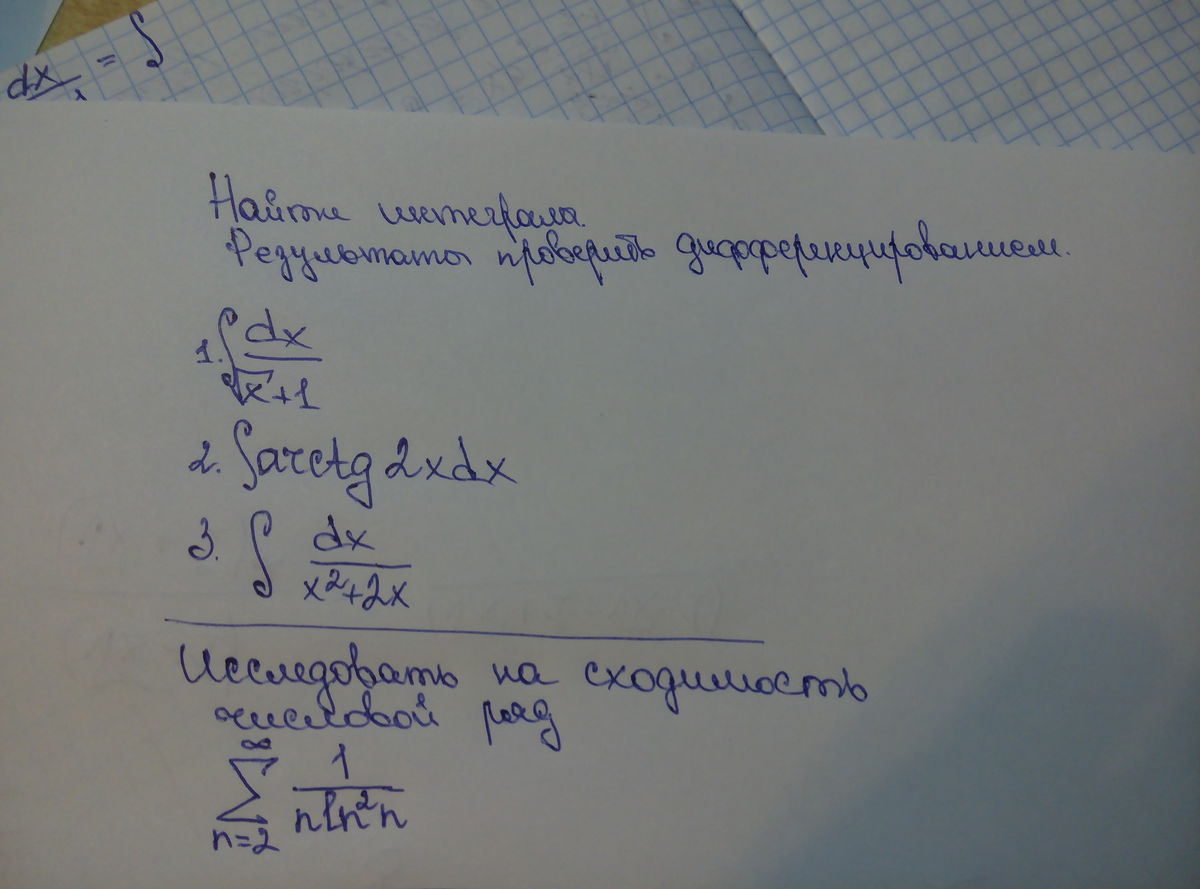 dx = ∫
Найти интегралы.
Результаты проверить дифференцированием.
1. ∫ dx / (√x + 1)
2. ∫ arctg 2x dx
3. ∫ dx / (x² + 2x)
Исследовать на сходимость
числовой ряд
∑_{n=2}^{∞} 1 / (n ln² n)